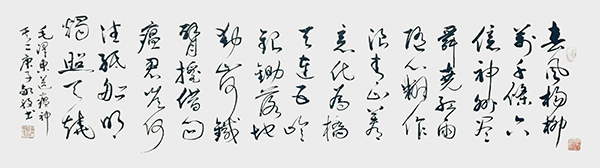 春風楊柳
萬千條六
億神州盡
舜堯紅雨
隨心翻作
浪青山著
意化為橋
天連五嶺
銀鋤落地
動三河鐵
臂搖借問
瘟君欲何
往紙船明
燭照天燒
毛澤東送瘟神
其二庚子書